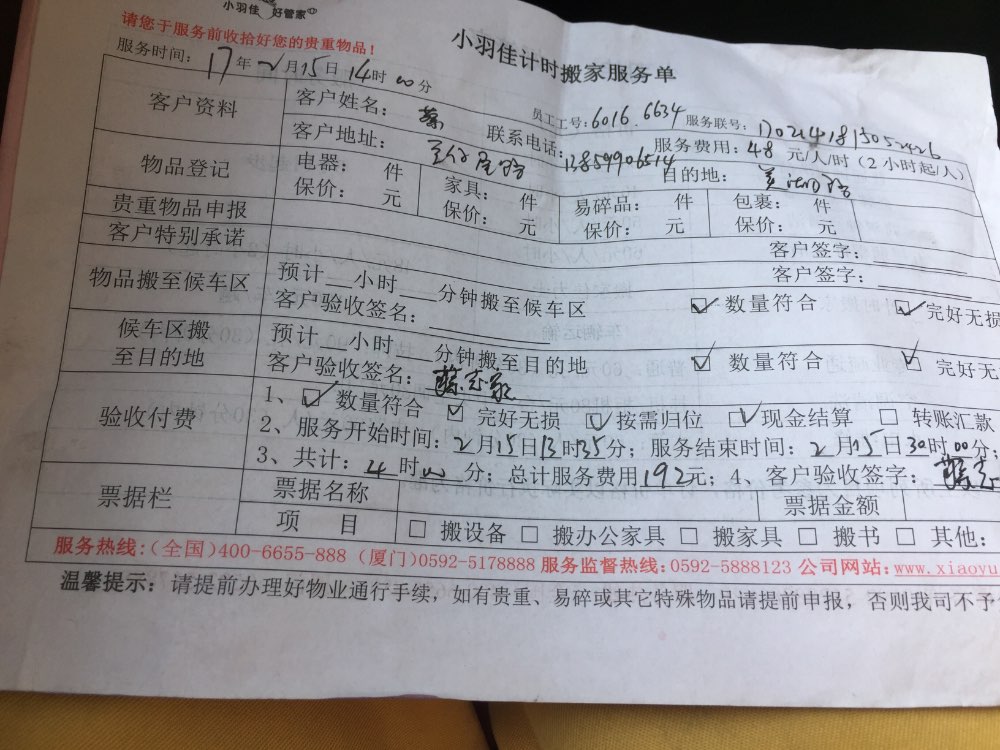 小羽佳 好管家
请您于服务前收拾好您的贵重物品！
小羽佳计时搬家服务单
服务时间：17年2月15日14时00分
员工工号：6016.6634 服务联号：
客户资料
客户姓名：蔡 联系电话：13859906514 服务费用：48元/人/时（2小时起/人）
客户地址： 目的地：
物品登记
电器： 件 家具： 件 易碎品： 件 包裹： 件
保价： 元 保价： 元 保价： 元 保价： 元
贵重物品申报 客户签字：
客户特别承诺 客户签字：
物品搬至候车区
预计__小时___分钟搬至候车区
客户验收签名： ☑数量符合 ☑完好无损
候车区搬至目的地
预计__小时___分钟搬至目的地
客户验收签名： ☑数量符合 ☑完好无
验收付费
1、☑数量符合 ☑完好无损 ☑按需归位 ☑现金结算 □转账汇款
2、服务开始时间：2月15日13时35分；服务结束时间：2月15日 时00分；
3、共计：4时00分；总计服务费用192元；4、客户验收签字：
票据栏
票据名称 票据金额
项 目 □搬设备 □搬办公家具 □搬家具 □搬书 □其他：
服务热线：（全国）400-6655-888（厦门）0592-5178888 服务监督热线：0592-5888123 公司网站：www.xiaoyu
温馨提示：请提前办理好物业通行手续，如有贵重、易碎或其它特殊物品请提前申报，否则我司不予